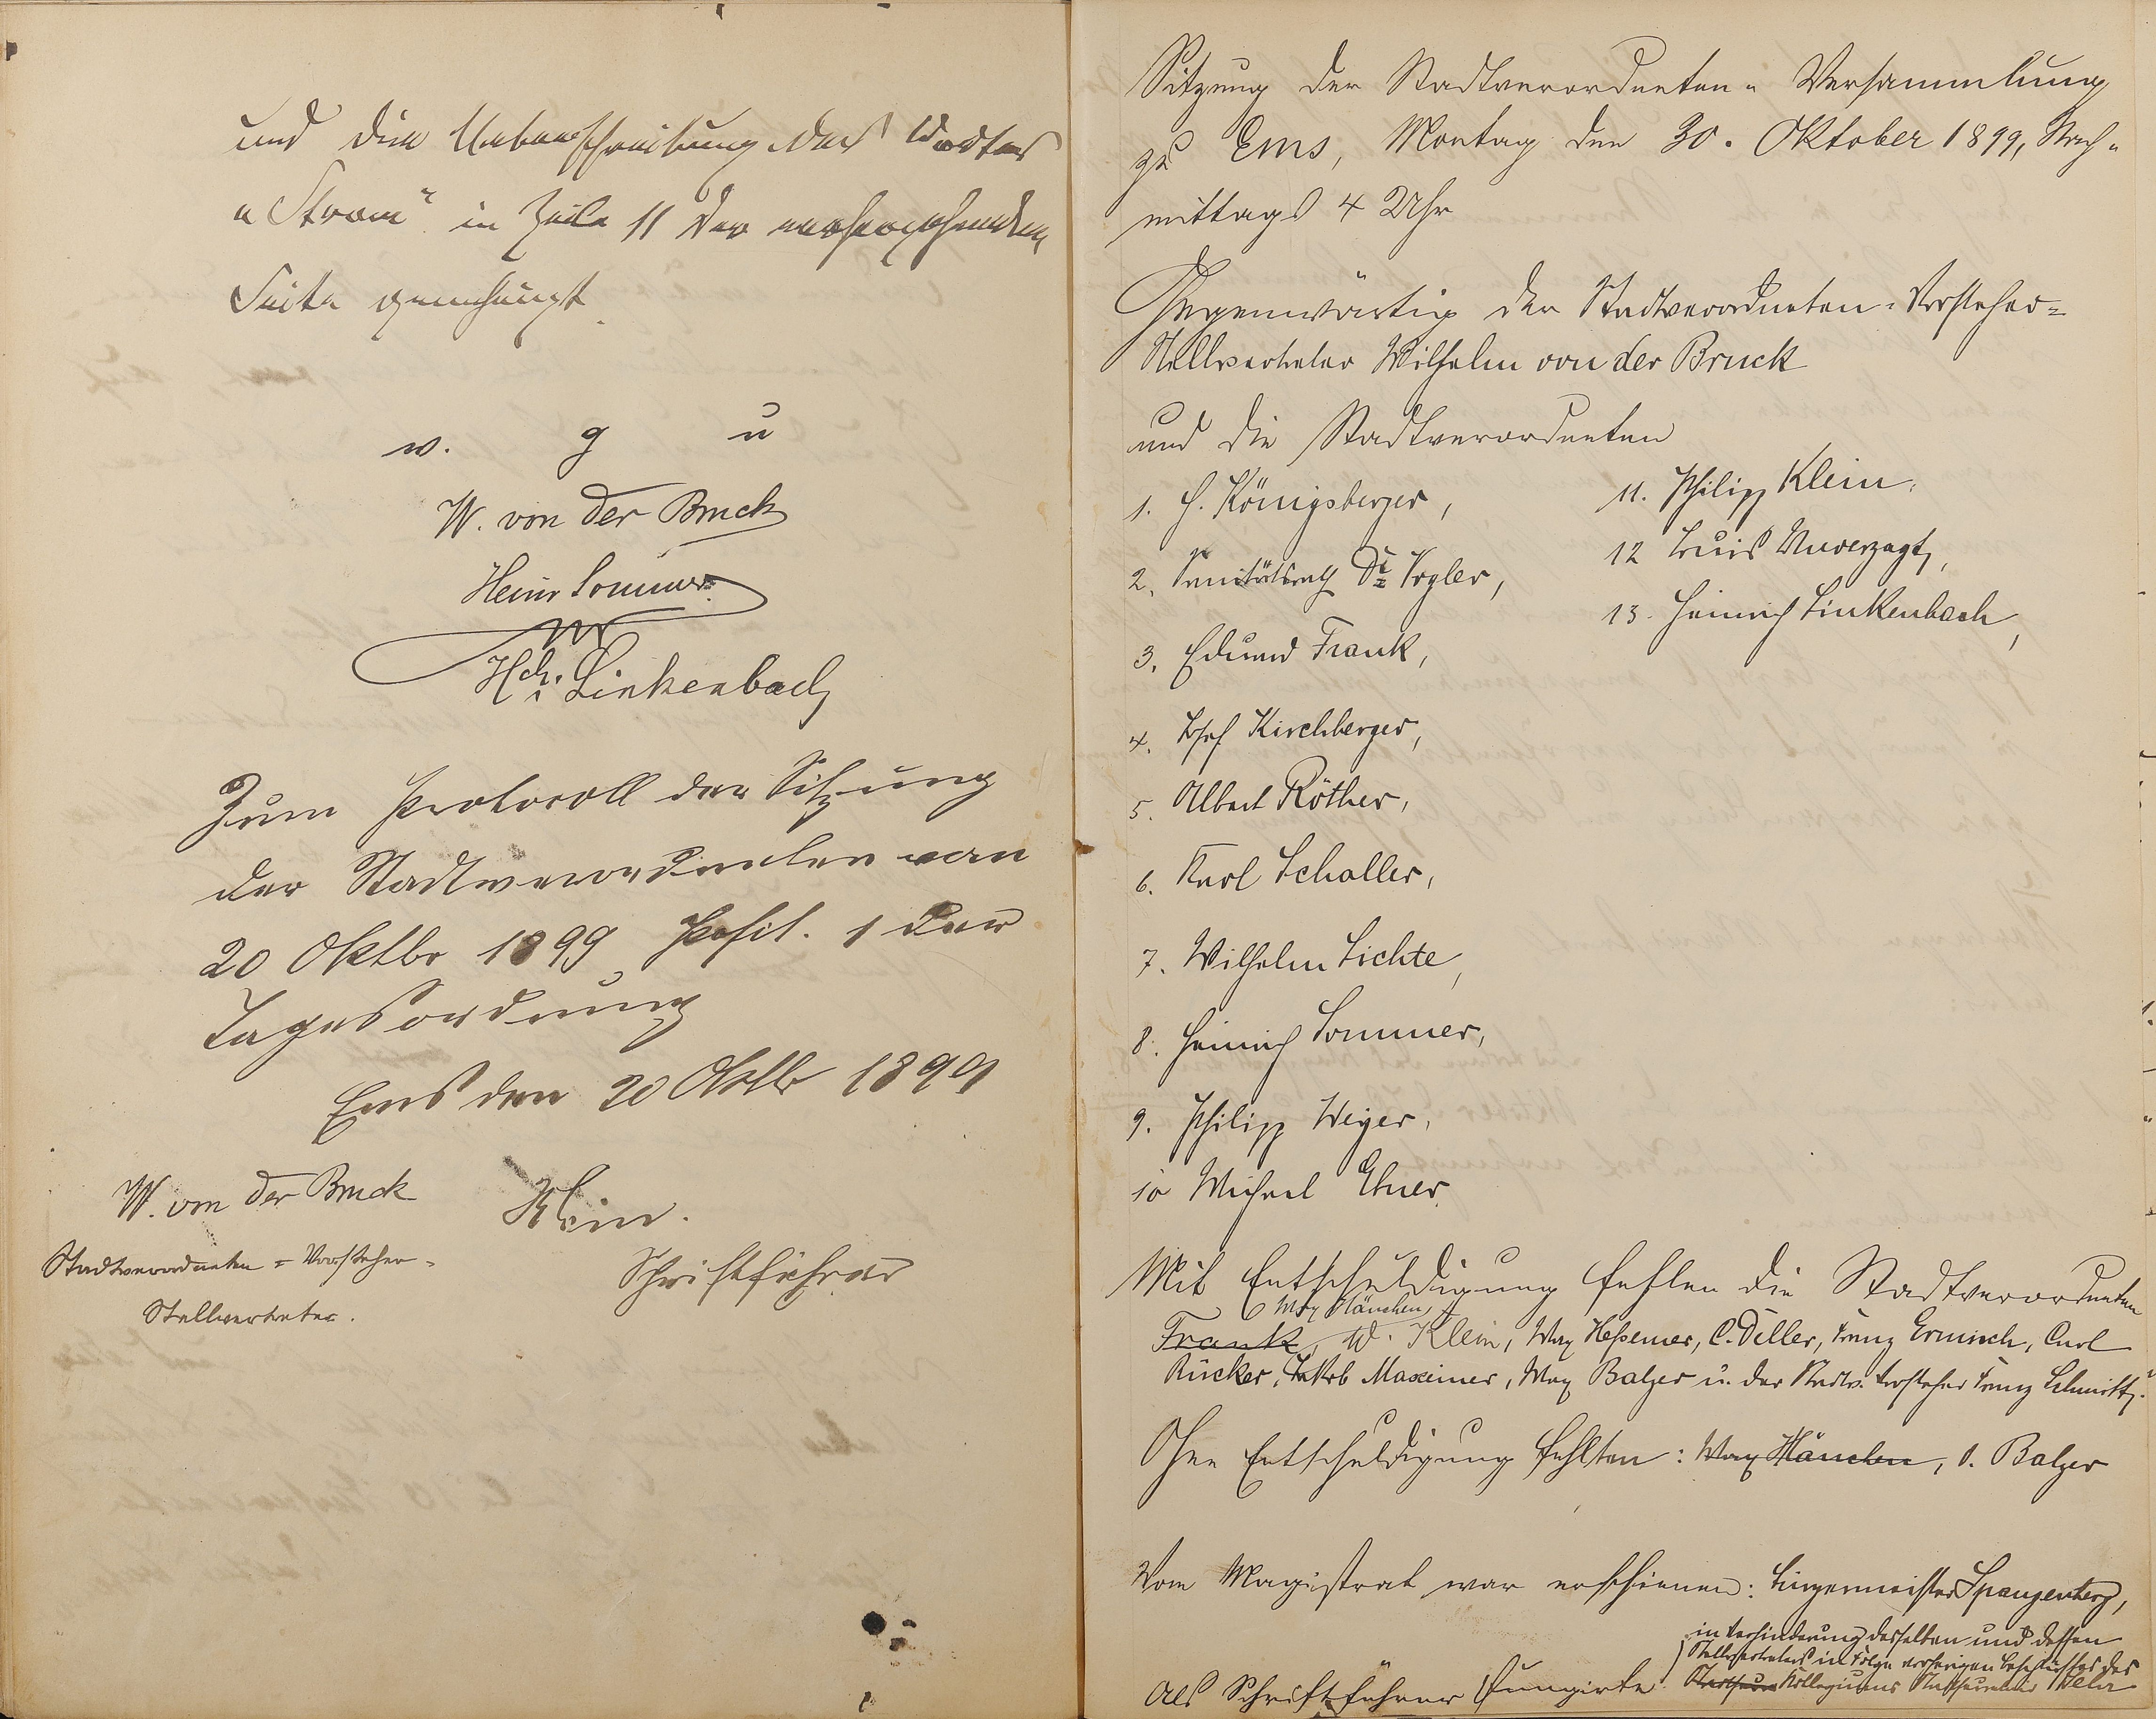 und die Ueberschreibung des Wortes
"Strom" in Zeile 11 der vorhergehenden
Seite genehmigt.
v. g u
W. von der Bruck
Heinr Sommer
Hch. Linkenbach
Zum Protocoll der Sitzung
der Stadtverordneten vom
20 Oktbr 1899, Posit. 1 der
Tagesordnung
Ems den 20 Oktbr 1899
W. von der Bruck
Klein.
Stadtverordneten=Vorsteher=
Schriftführer
Stellvertreter.
Sitzung der Stadtverordneten-Versammlung
zu Ems, Montag den 30. Oktober 1899, Nach-
mittags 4 Uhr
Gegenwärtig der Stadtverordneten-Vorsteher=
Stellvertreter Wilhelm von der Bruck
und die Stadtverordneten
1. H. Königsberger,
2. Sanitätsrath Dr Vogler,
3. Eduard Frank,
4. Josef Kirchberger,
5. Albert Röther,
6. Karl Schaller,
7. Wilhelm Lichte,
8. Heinrich Sommer,
9. Philipp Weyer,
10 Michael Elner.
11. Philipp Klein,
12 Louis Unverzagt,
13. Heinrich Linkenbach,
Mit Entschuldigung fehlen die Stadtverordneten
Max Hänchen,
Frank, W. Klein, Max Heßemer, C. Diller, Franz Ermisch, Carl
Rücker, Jakob Maxeiner, Max Balzer u. der Stadtv. Vorsteher Franz Schmitt.
Ohne Entschuldigung fehlten: Max Hänchen, J. Balzer
Vom Magistrat war erschienen: Bürgermeister Spangenberg,
in Verhinderung desselben und dessen
Stellvertreters in Folge vorherigen Beschlusses des
Als Schriftführer fungirte Kollegiums